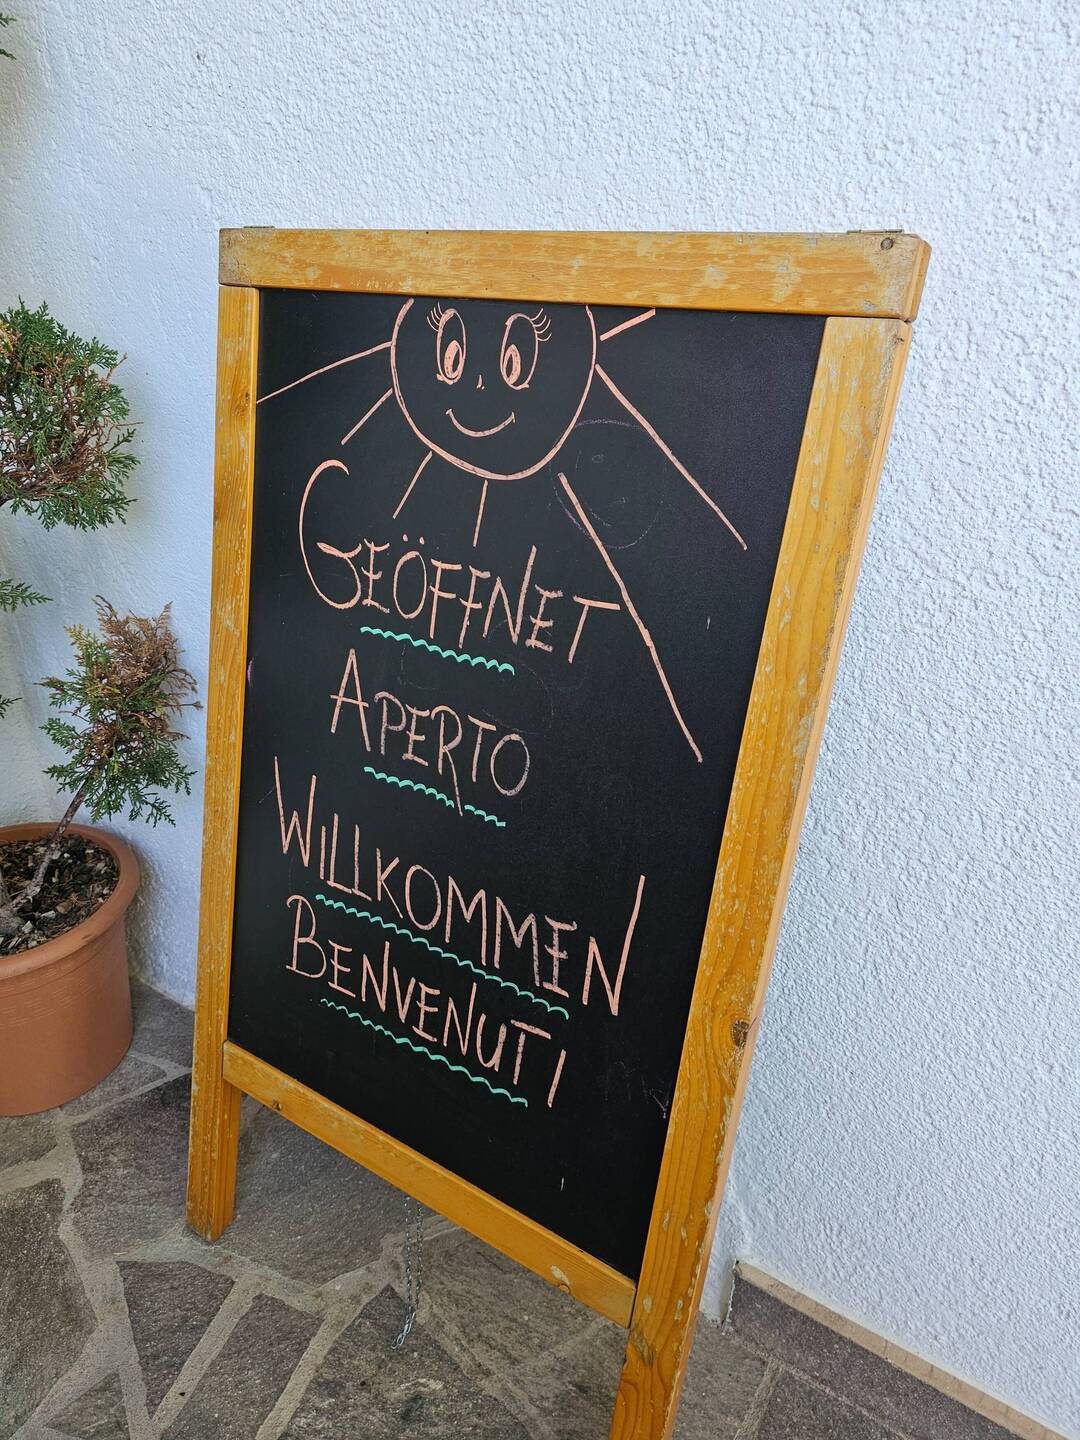 GEÖFFNET
APERTO
WILLKOMMEN
BENVENUTI